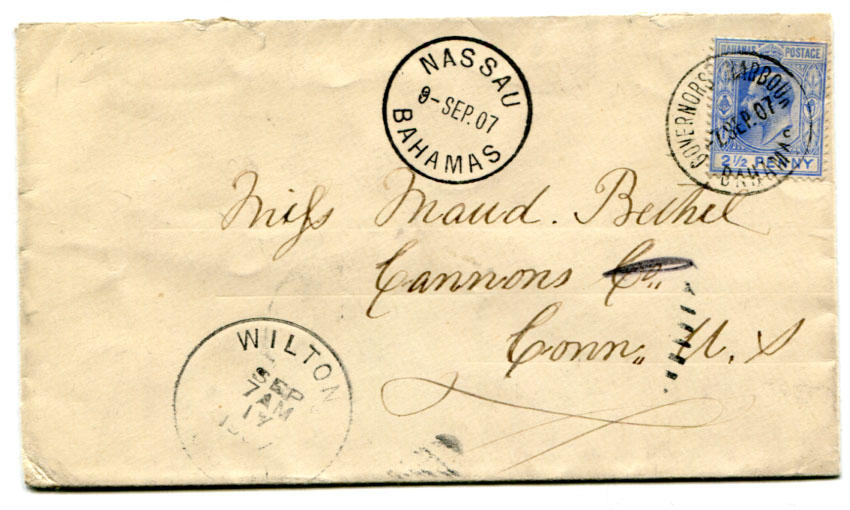 NASSAU
8-SEP.07
BAHAMAS
BAHAMAS POSTAGE
GOVERNORS HARBOUR
SEP.07
BAHAMAS
2½ PENNY
Miss Maud. Bethel
Cannons Co.
Conn. U.S
WILTON
SEP
7AM
17